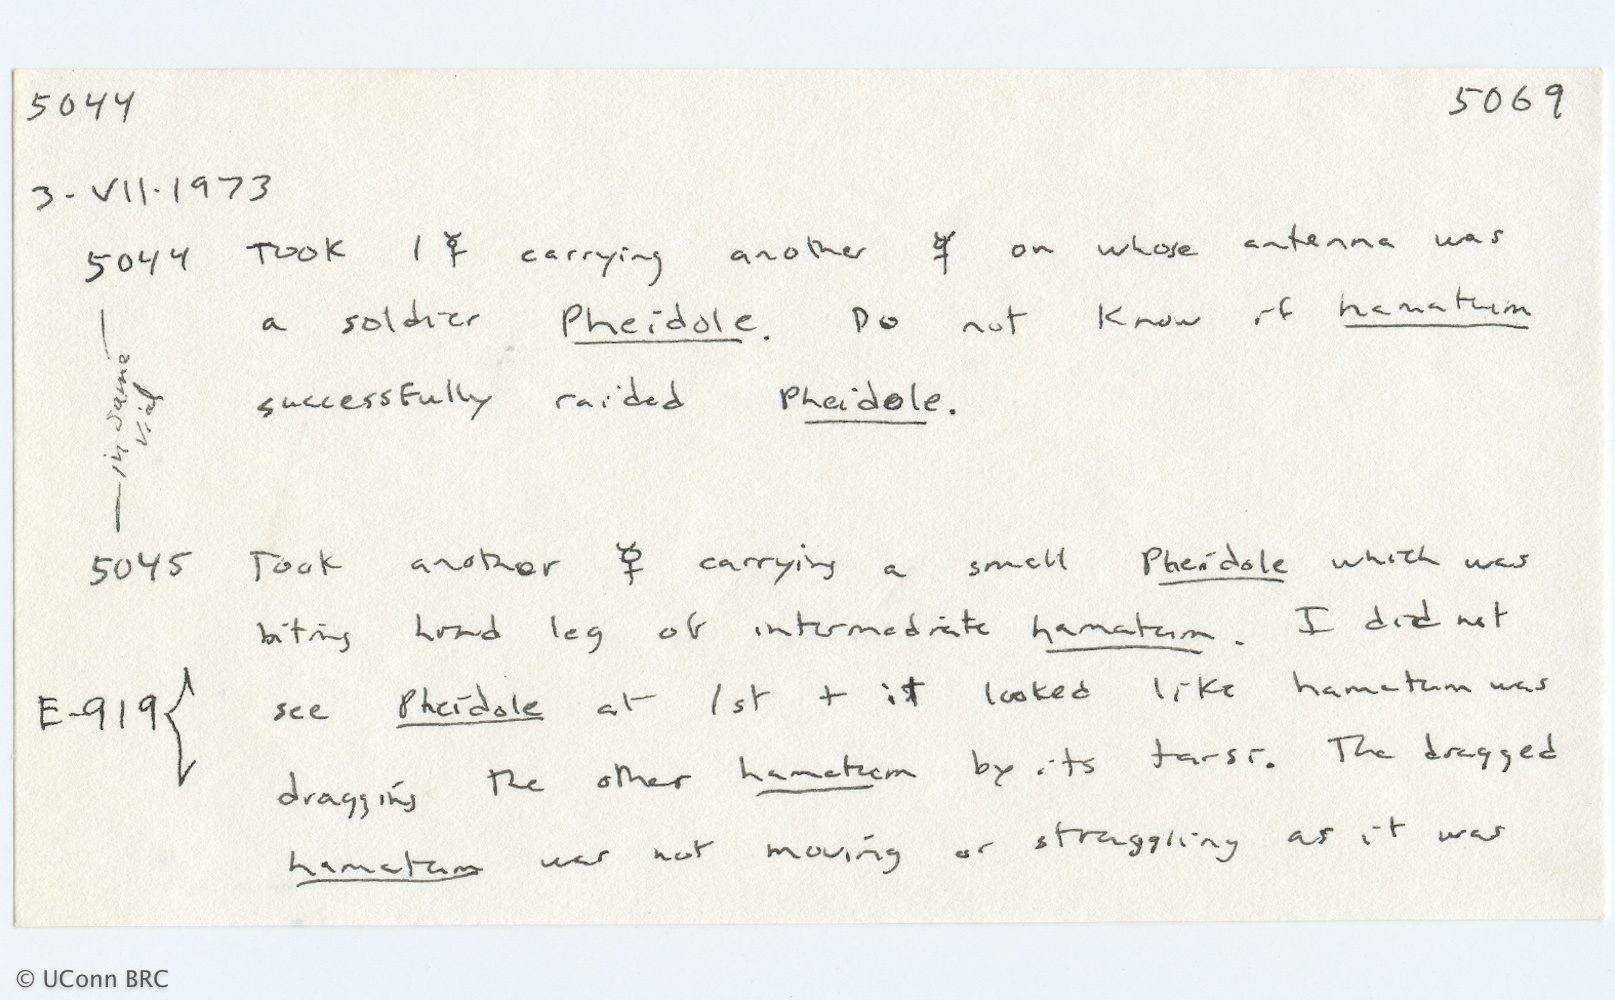 5044 5069
3-VII-1973
5044 Took 1 ☿ carrying another ☿ on whose antenna was
a soldier Pheidole. Do not know if hamatum
successfully raided Pheidole.
— in same vial —
5045 Took another ☿ carrying a small Pheidole which was
biting hind leg of intermediate hamatum. I did not
E-919 { see Pheidole at 1st + it looked like hamatum was
dragging the other hamatum by its tarsi. The dragged
hamatum was not moving or straggling as it was
© UConn BRC